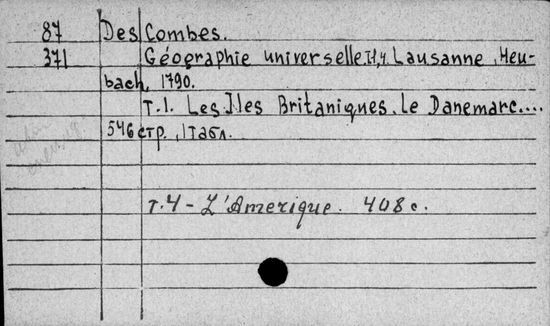 87 Des Combes.
371 Géographie universelle. T.1,4. Lausanne, Heu-
bach, 1790.
T.1. Les Iles Britaniques. Le Danemarc....
546 стр., 1 табл.
т.4 - L'Amerique. 408 с.